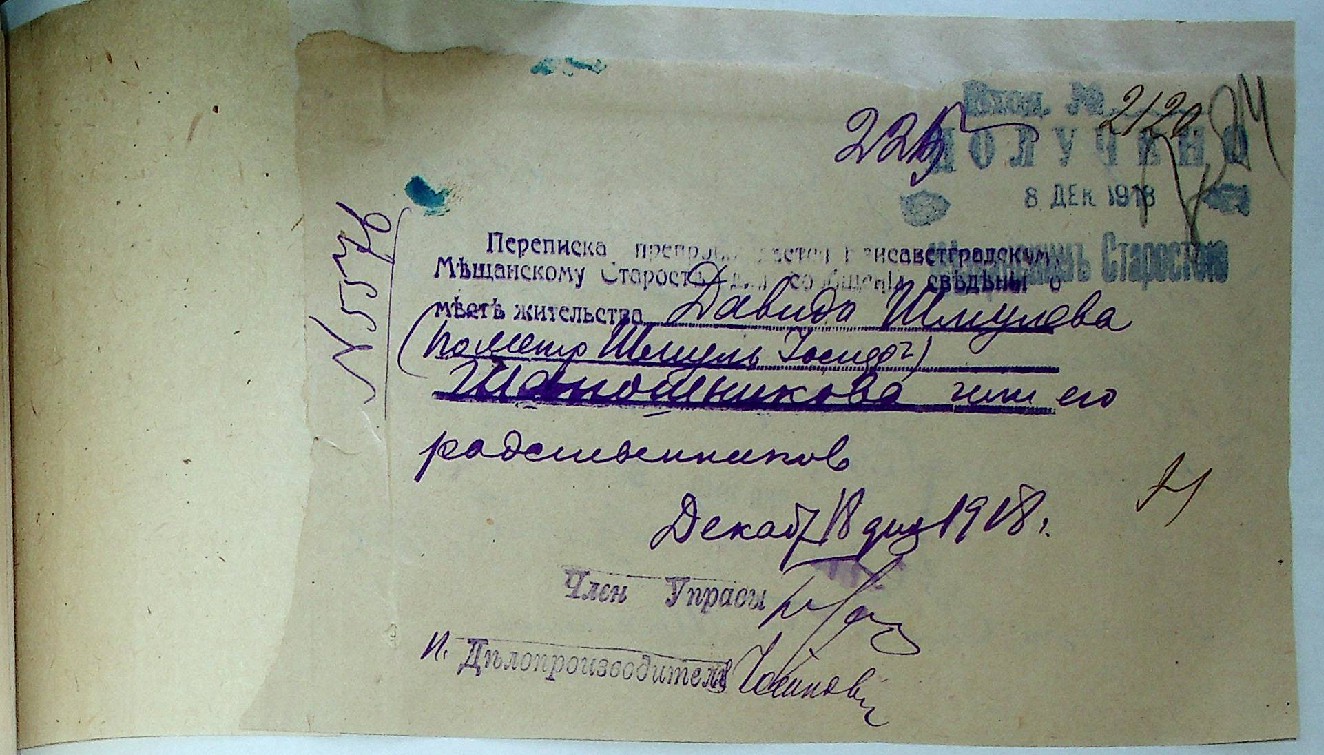 Вход. № 2120
225
ПОЛУЧЕНО
8 ДЕК 1918
Мѣщанскимъ Старостою
№ 5576
Переписка препровождается Елисаветградскому
Мѣщанскому Старостѣ для сообщенія свѣдѣны о
мѣстѣ жительства Давида Шмулева
(по метр Шмуль Iосифов)
или его
родственников
Декаб 18 дня 1918 г.
Член Управы
и. Дѣлопроизводителя